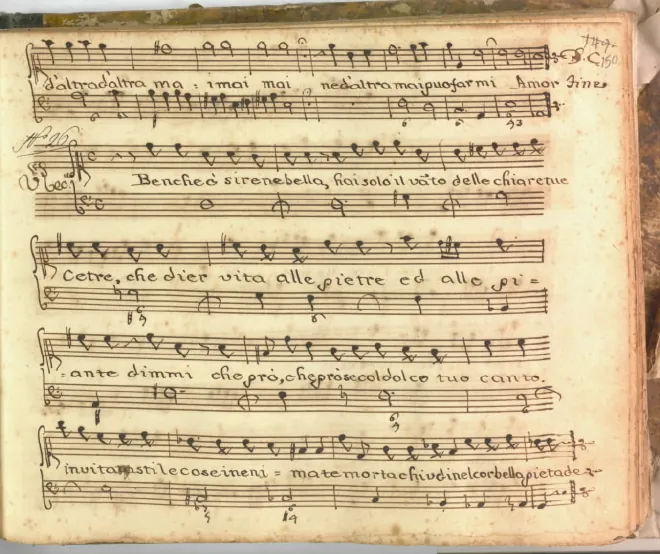 149.
D. C. 150
d'altra d'altra ma = i mai mai ne d'altra mai può farmi Amor Fine
6 6 43
N.º 26
Rec.
Benche ò sirene bella, hai solo il vāto delle chiare tue
Cetre, che dier vita alle pietre ed alle pi =
= ante dimmi che prò, che prò se col dolce tuo canto.
invitasti le cose ineni = mate morta chiudi nel cor bella pietade